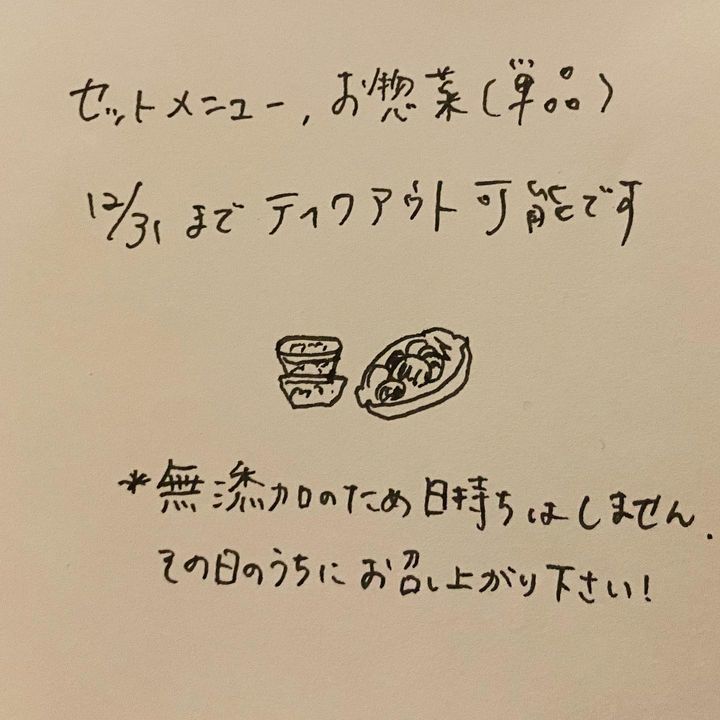 セットメニュー, お惣菜(単品)
12/31 まで テイクアウト 可能です
*無添加のため 日持ちはしません.
その日のうちに お召し上がり下さい!